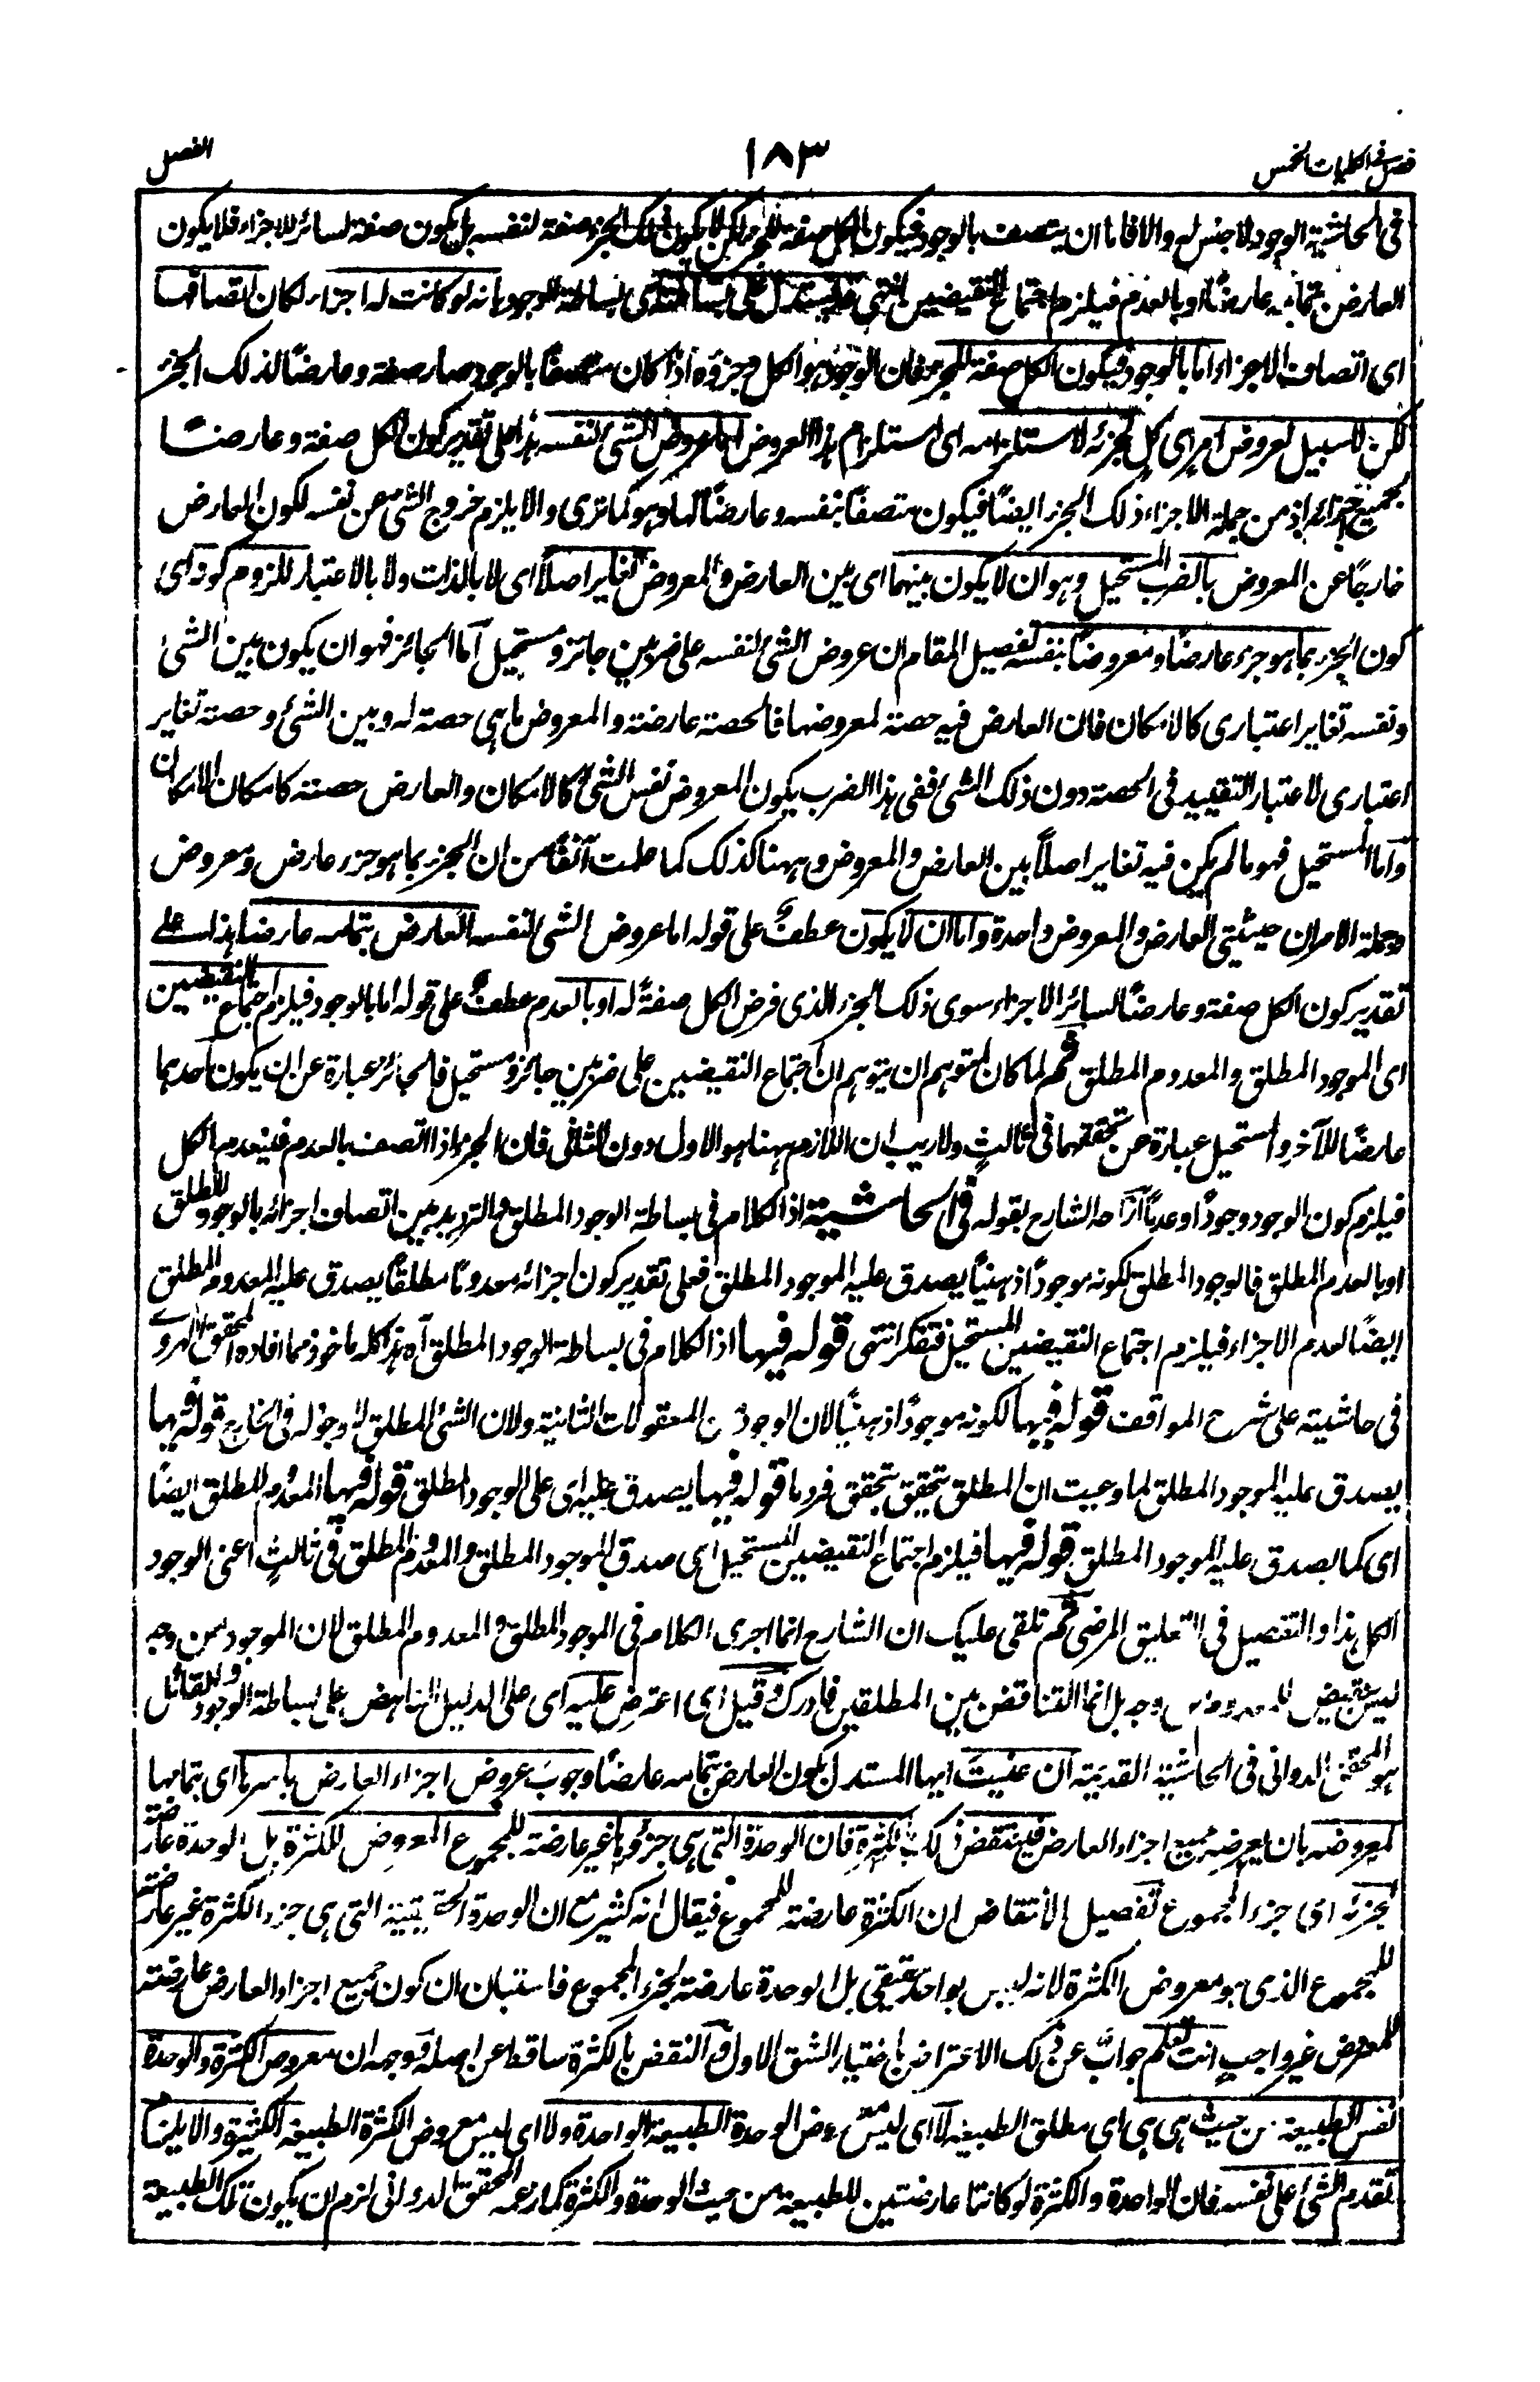 فصل فى الكليات الخمس
١٨٣
الفصل
فى الحاشية الوجود لا جنس له والا فاما ان يتصف بالوجود فيكون الكل صفة للجزء ولكن لا يكون ذلك الجزء صفة لنفسه بل يكون صفة لسائر الاجزاء فلا يكون
العارض بتمامه عارضًا او بالعدم فيلزم اجتماع النقيضين انتهى بساطة الوجود بانه لو كانت له اجزاء لكان اتصافها
اى اتصاف الاجزاء اما بالوجود فيكون الكل صفة للجزء فان الوجود هو الكل وجزؤه اذا كان متصفًا بالوجود صار صفة وعارضًا لذلك الجزء
لكن لا سبيل لعروض امر اى كل لجزئه لاستلزامه اى استلزام هذا العروض اما عروض الشئ لنفسه هذا على تقدير كون الكل صفة وعارضًا
لجميع اجزائه اذ من جملة الاجزاء ذلك الجزء ايضًا فيكون متصفًا بنفسه وعارضًا لها وهو كما ترى والا يلزم خروج الشئ عن نفسه لكون العارض
خارجًا عن المعروض بالضرب المستحيل وهو ان لا يكون بينهما اى بين العارض والمعروض تغاير اصلًا اى لا بالذات ولا بالاعتبار للزوم كونه اى
كون الجزء بما هو جزء عارضًا ومعروضًا بنفسه تفصيل المقام ان عروض الشئ لنفسه على ضربين جائز ومستحيل اما الجائز فهو ان يكون بين الشئ
ونفسه تغاير اعتبارى كالامكان فان العارض فيه حصة لمعروضها فالحصة عارضة والمعروض ما هى حصة له وبين الشئ وحصة تغاير
اعتبارى لاعتبار التقييد فى الحصة دون ذلك الشئ ففى هذا الضرب يكون المعروض نفس الشئ كالامكان والعارض حصته كامكان الامكان
واما المستحيل فهو ما لم يكن فيه تغاير اصلًا بين العارض والمعروض وههنا كذلك كما علمت آنفًا من ان الجزء بما هو جزء عارض ومعروض
وجملة الامر ان حيثيتى العارض والمعروض واحدة واما ان لا يكون عطفٌ على قوله اما عروض الشئ لنفسه العارض بتمامه عارضا هذا على
تقدير كون الكل صفة وعارضًا لسائر الاجزاء سوى ذلك الجزء الذى فرض الكل صفةً له او بالعدم عطفٌ على قوله اما بالوجود فيلزم اجتماع النقيضين
اى الموجود المطلق والمعدوم المطلق ثم لما كان لمتوهم ان يتوهم ان اجتماع النقيضين على ضربين جائز ومستحيل فالجائز عبارة عن ان يكون احدهما
عارضًا للآخر والمستحيل عبارة عن تحققهما فى ثالثٍ ولا ريب ان اللازم ههنا هو الاول دون الثانى فان الجزء اذا اتصف بالعدم فينعدم الكل
فيلزم كون الوجود وجودًا وعدمًا ازاحه الشارح بقوله فى الحاشية اذ الكلام فى بساطة الوجود المطلق والترديد بين اتصاف اجزائه بالوجود المطلق
او بالعدم المطلق فالوجود المطلق لكونه موجودًا ذهنيًا يصدق عليه الموجود المطلق فعلى تقدير كون اجزائه معدومًا مطلقًا يصدق عليه المعدوم المطلق
ايضًا لعدم الاجزاء فيلزم اجتماع النقيضين المستحيل فتفكر انتهى قوله فيها اذ الكلام فى بساطة الوجود المطلق آه هذا كله ماخوذ مما افاده المحقق الهروى
فى حاشيته على شرح المواقف قوله فيها لكونه موجودًا ذهنيًا لان الوجود من المعقولات الثانية ولان الشئ المطلق لا وجود له فى الخارج قوله فيها
يصدق عليه الموجود المطلق لما وعيت ان المطلق يتحقق بتحقق فرد ما قوله فيها يصدق عليه اى على الوجود المطلق قوله فيها المعدوم المطلق ايضًا
اى كما يصدق عليه الموجود المطلق قوله فيها فيلزم اجتماع النقيضين المستحيل اى صدق الموجود المطلق والمعدوم المطلق فى ثالثٍ اعنى الوجود
الكل هذا والتفصيل فى التعليق المرضى ثم تلقى عليك ان الشارح انما اجرى الكلام فى الموجود المطلق والمعدوم المطلق لان الموجود من وجه
ليس بنقيض للمعدوم من وجه بل انما التناقض بين المطلقين فادرك وقيل اى اعترض عليه اى على الدليل الناهض على بساطة الوجود والقائل
هو المحقق الدوانى فى الحاشية القديمة ان عنيت ايها المستدل بكون العارض بتمامه عارضًا وجوبَ عروض اجزاء العارض باسرها اى بتمامها
لمعروضه بان يعرضه جميع اجزاء العارض فينتقض ذلك بالكثرة فان الوحدة التى هى جزؤها غير عارضة للمجموع المعروض للكثرة بل الوحدة عارضة
لجزئه اى جزء المجموع تفصيل الانتقاض ان الكثرة عارضة للمجموع فيقال انه كثير مع ان الوحدة الحقيقية التى هى جزء الكثرة غير عارضة
للمجموع الذى هو معروض الكثرة لانه ليس بواحد حقيقى بل الوحدة عارضة لجزء المجموع فاستبان ان كون جميع اجزاء العارض عارضة
للمعروض غير واجبٍ انت تعلم جوابٌ عن ذلك الاعتراض باختيار الشق الاول ان النقض بالكثرة ساقط عن اصله فوجهه ان معروض الكثرة والوحدة
نفس الطبيعة من حيث هى هى اى مطلق الطبيعة لا اى ليس معروض الوحدة الطبيعة الواحدة ولا اى ليس معروض الكثرة الطبيعة الكثيرة والا يلزم
تقدم الشئ على نفسه فان الواحدة والكثرة لو كانتا عارضتين للطبيعة من حيث الوحدة والكثرة كما زعمه المحقق الدوانى لزم ان يكون تلك الطبيعة